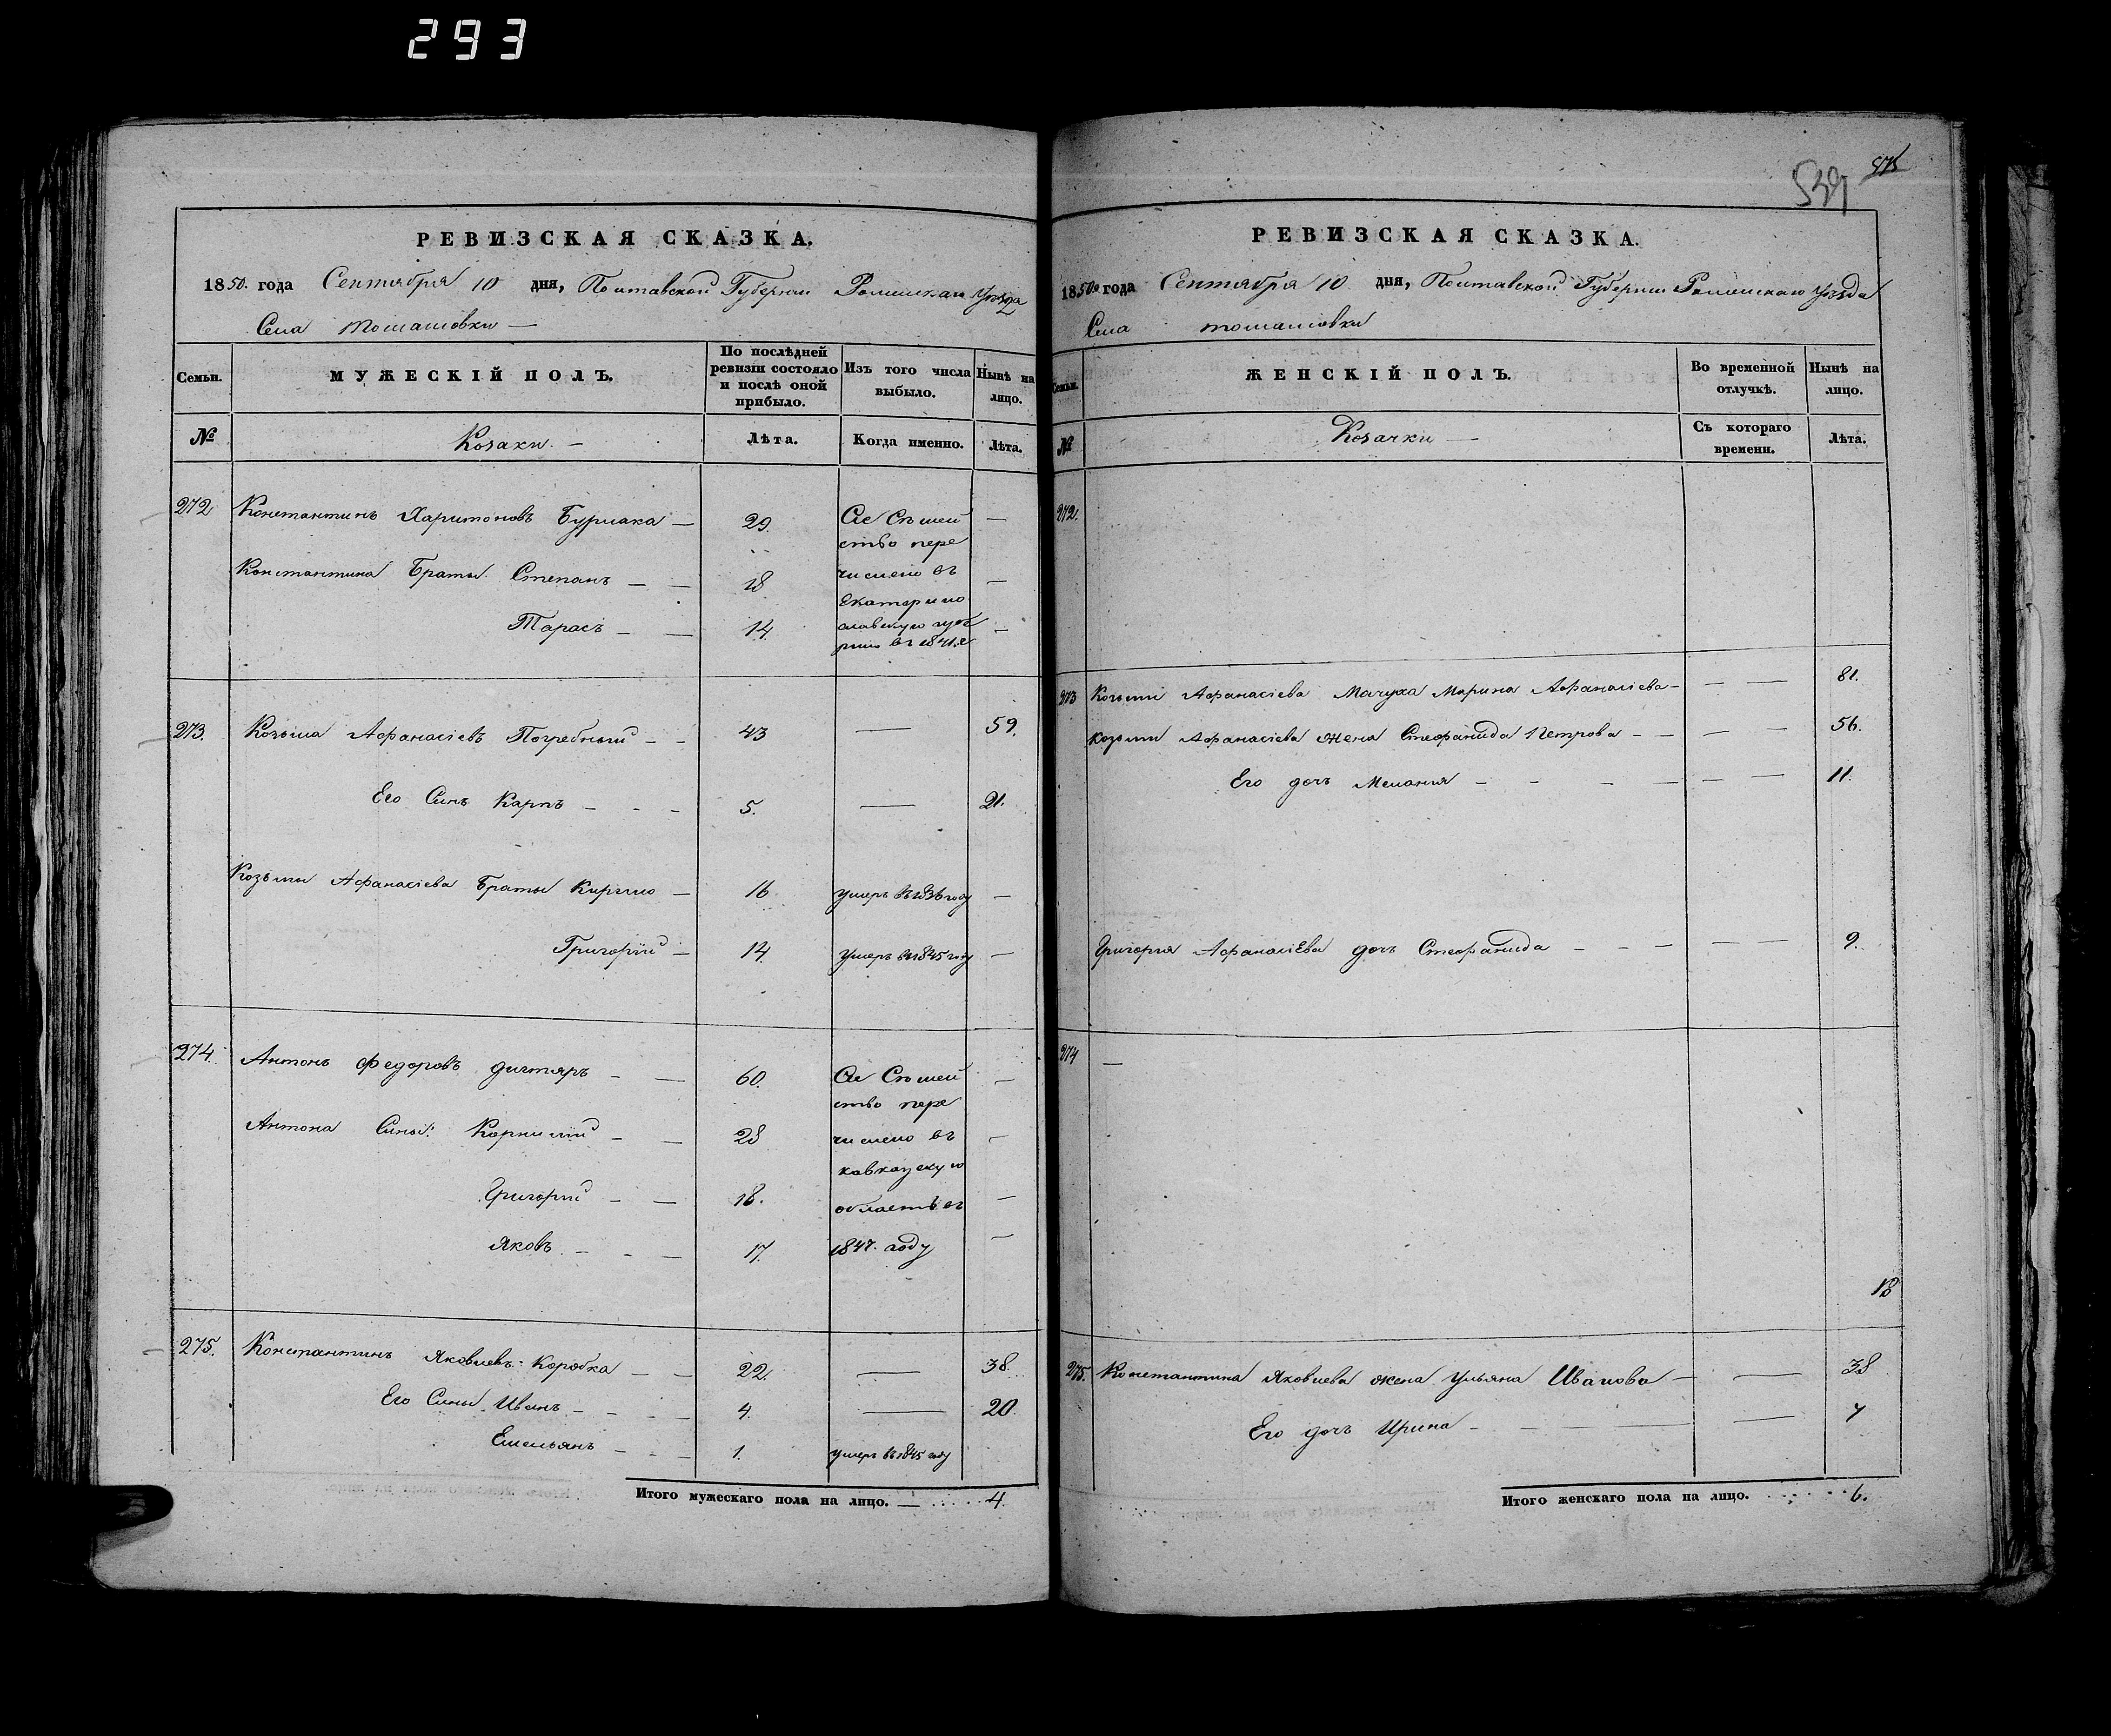 293
РЕВИЗСКАЯ СКАЗКА.
1850. года Сентября 10 дня, Полтавской Губернии Роменскаго Уезда
Села Томашовки —
Семьи.
МУЖЕСКІЙ ПОЛЪ.
По послѣдней ревизіи состояло и послѣ оной прибыло.
Изъ того числа выбыло.
Нынѣ на лицо.
№
Козаки. —
Лѣта.
Когда именно.
Лѣта.
272 Константинъ Харитоновъ Бурлака — 29. —
Константина Браты. Степанъ — — 18 —
Тарасъ — — 14. —
Сіе Семей
ство пере
числено въ
Екатерино
славскую губе
рнію въ 1841.г
273. Козьма Афанасіевъ Погребный — — 43 — 59.
Его Синъ Карпъ — — — 5. — 21.
Козьмы Афанасіева Браты Кирило — 16 умеръ въ 1836 году —
Григорій — 14. умеръ въ 1845 году —
274. Антонъ Федоровъ Дигтяръ — — 60. —
Антона Сины: Корнилій — — 28 —
Григорій — — 18. —
Яковъ — — — 17. —
Сіе Семей
ство пере
числено въ
кавказскую
область въ
1847. году
275. Константинъ Яковлевъ Коробка — — 22. — 38.
Его Сины Иванъ — — — — 4. — 20.
Емельянъ — — — 1. умеръ въ 1845 году
Итого мужескаго пола на лицо. — 4.
539
РЕВИЗСКАЯ СКАЗКА.
1850го года Сентября 10 дня, Полтавской Губерніи Роменскаго Уезда
Села Томашовки
Семьи.
ЖЕНСКІЙ ПОЛЪ.
Во временной отлучкѣ.
Нынѣ на лицо.
№
Козачки —
Съ котораго времени.
Лѣта.
272.
273 Козьми Афанасіева Мачуха Марина Афанасіева — — — 81.
Козьми Афанасіева Жена Стефанида Петрова — — — — 56.
Его дочъ Меланія — — — — — — 11.
Григорія Афанасіева дочъ Стефанида — — — — — 9.
274 —
18
275. Константина Яковлева жена Ульяна Иванова — — 38
Его дочъ Ирина — — — — 7
Итого женскаго пола на лицо. 6.